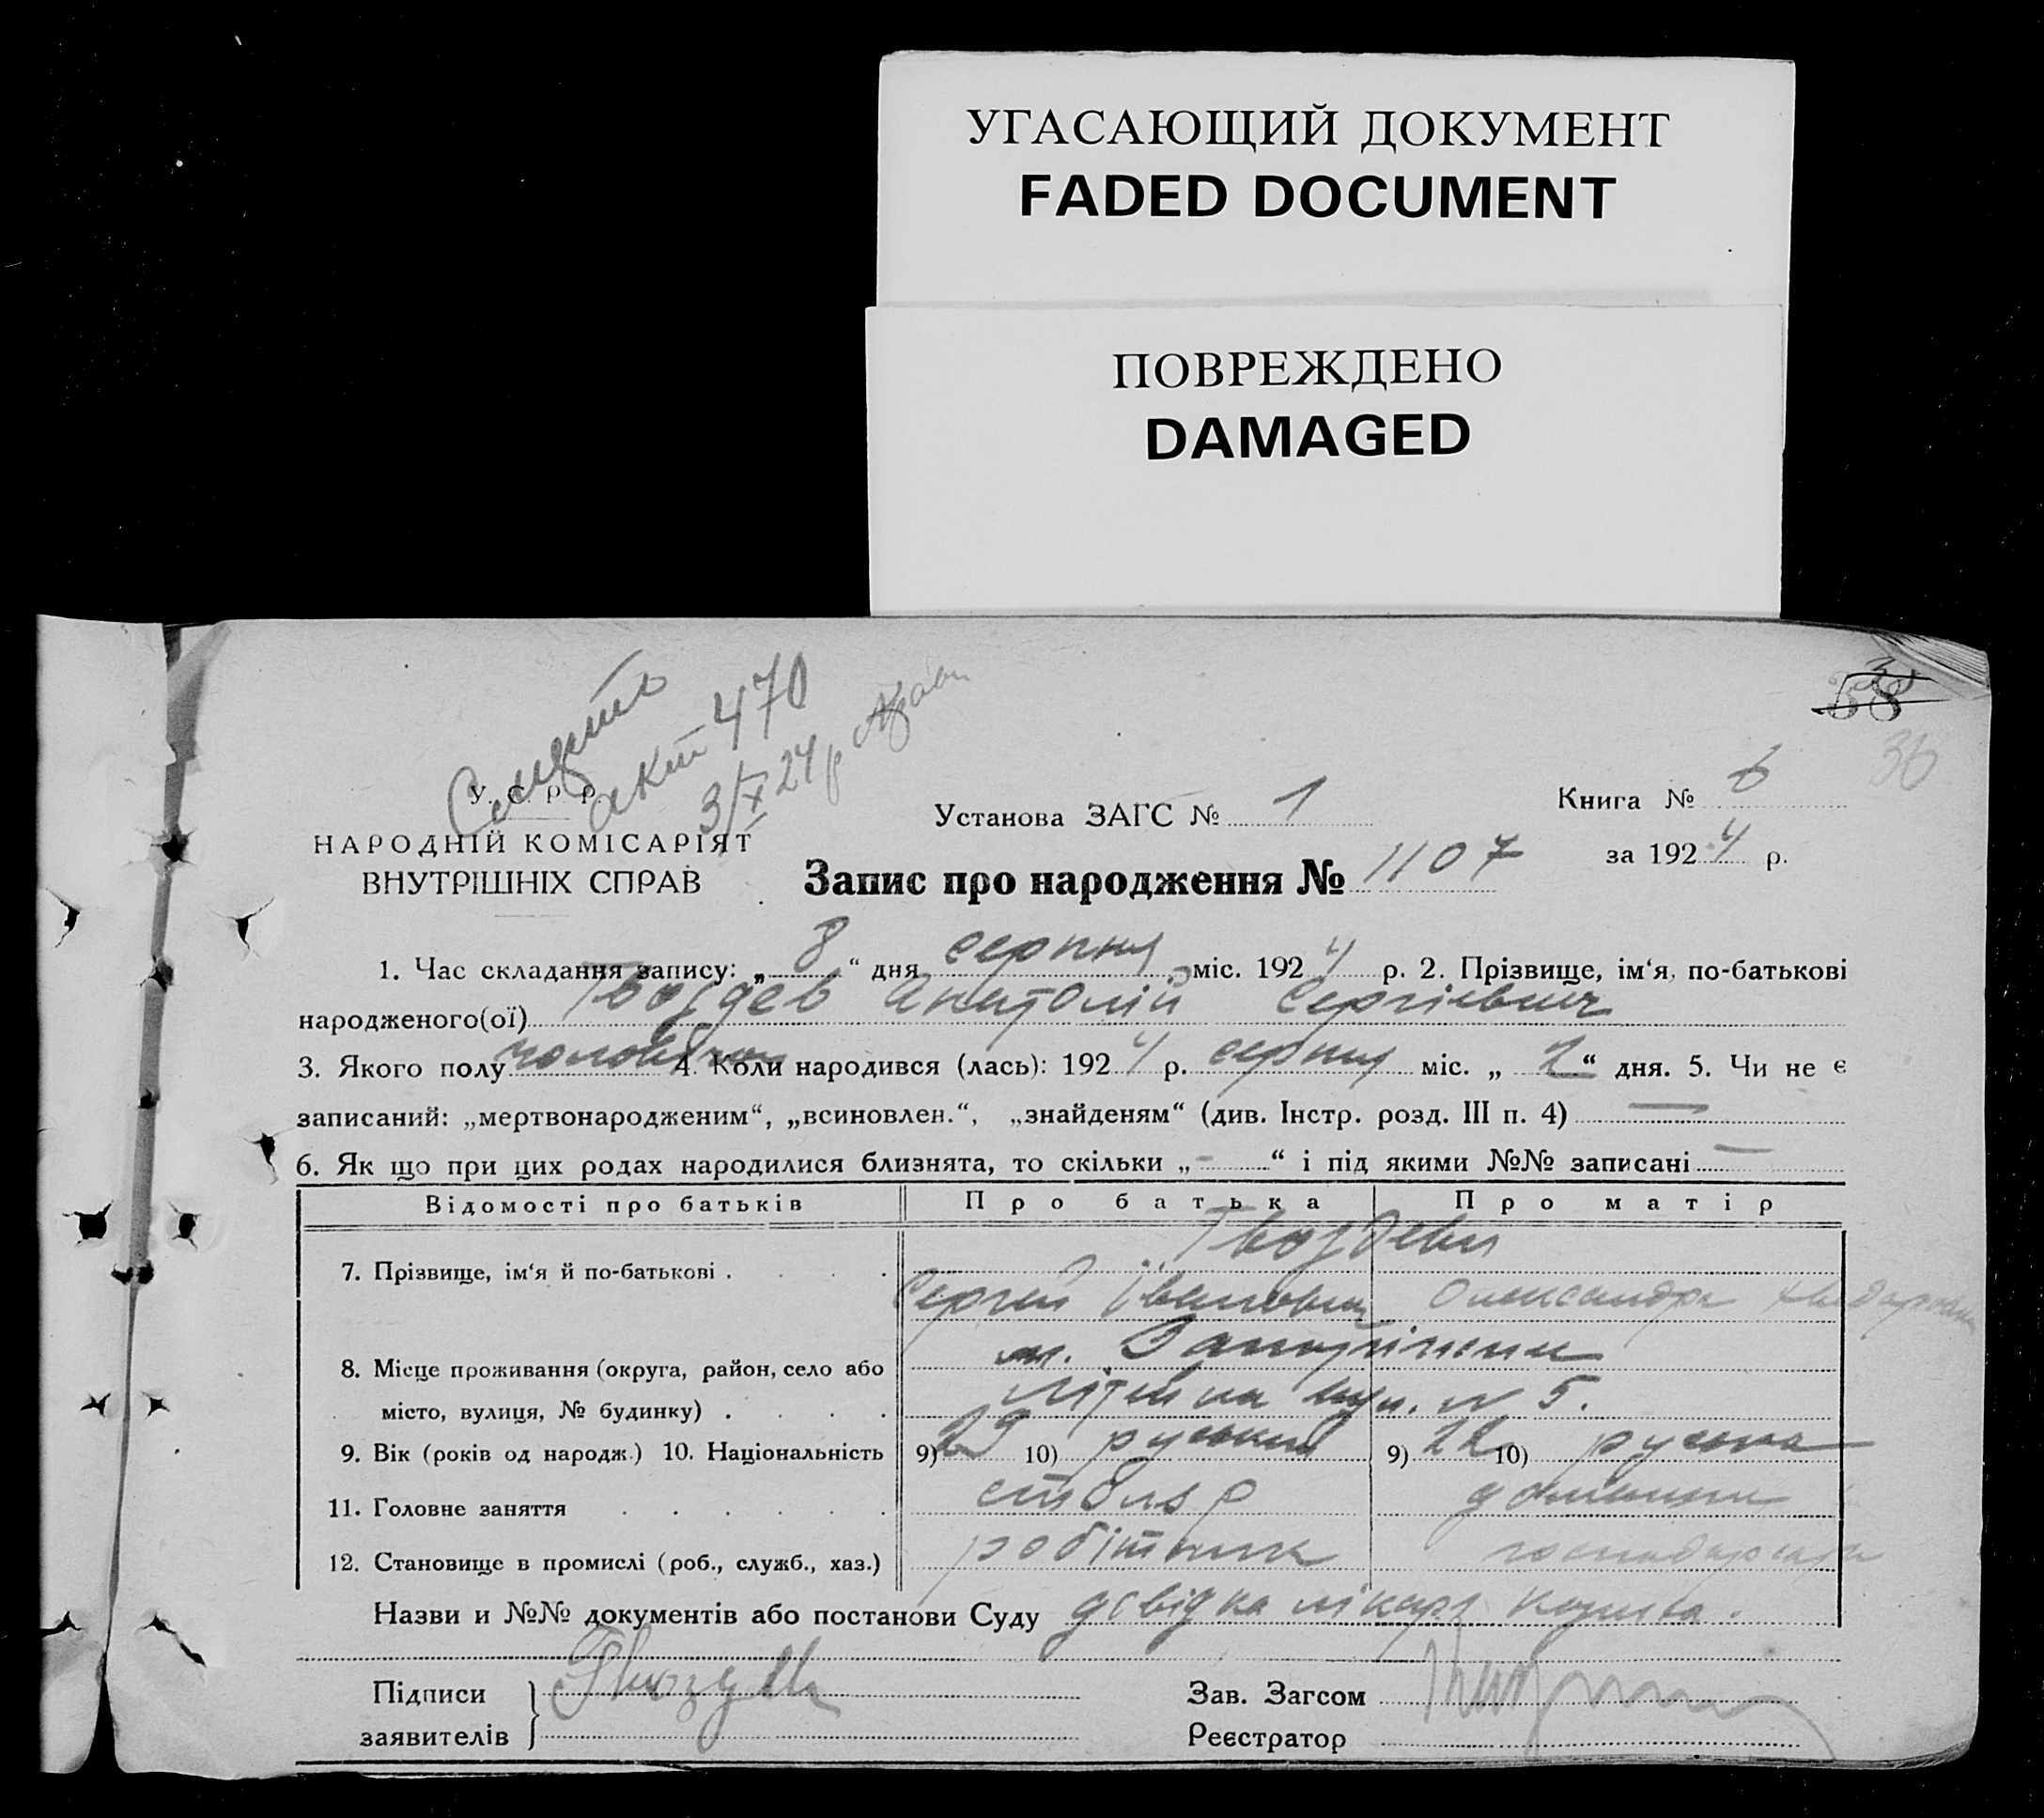 УГАСАЮЩИЙ ДОКУМЕНТ
FADED DOCUMENT
ПОВРЕЖДЕНО
DAMAGED
38
36
Смерть
акт 470
3/X 24 р
У. С. Р. Р.
НАРОДНІЙ КОМІСАРІЯТ
ВНУТРІШНІХ СПРАВ
Установа ЗАГС № 1
Книга № 6
за 1924 р.
Запис про народження № 1107
1. Час складання запису: „ 8 “ дня серпня міс. 1924 р. 2. Прізвище, ім‘я, по-батькові
народженого(ої) Гвоздев Анатолій Сергієвич
3. Якого полу чоловічой 4. Коли народився (лась): 1924 р. серпня міс. „ 2 “ дня. 5. Чи не є
записаний: „мертвонародженим“, „всиновлен.“, „знайденям“ (див. Інстр. розд. III п. 4) —
6. Як що при цих родах народилися близнята, то скільки „ - “ і під якими №№ записані —
Відомості про батьків Про батька Про матір
Гвоздеви
7. Прізвище, ім‘я й по-батькові . . . . Сергій Іванович Олександра
8. Місце проживання (округа, район, село або м. Запоріжжи
місто, вулиця, № будинку) . . . . вул. № 5.
9. Вік (років од народж.) 10. Національність 9) 29 10) руський 9) 22 10) руська
11. Головне заняття . . . . . . столяр домашни
12. Становище в промислі (роб., служб., хаз.) робітник господарка
Назви и №№ документів або постанови Суду довідка лікаря
Підписи
заявителів
Гвоздев
Зав. Загсом
Реєстратор